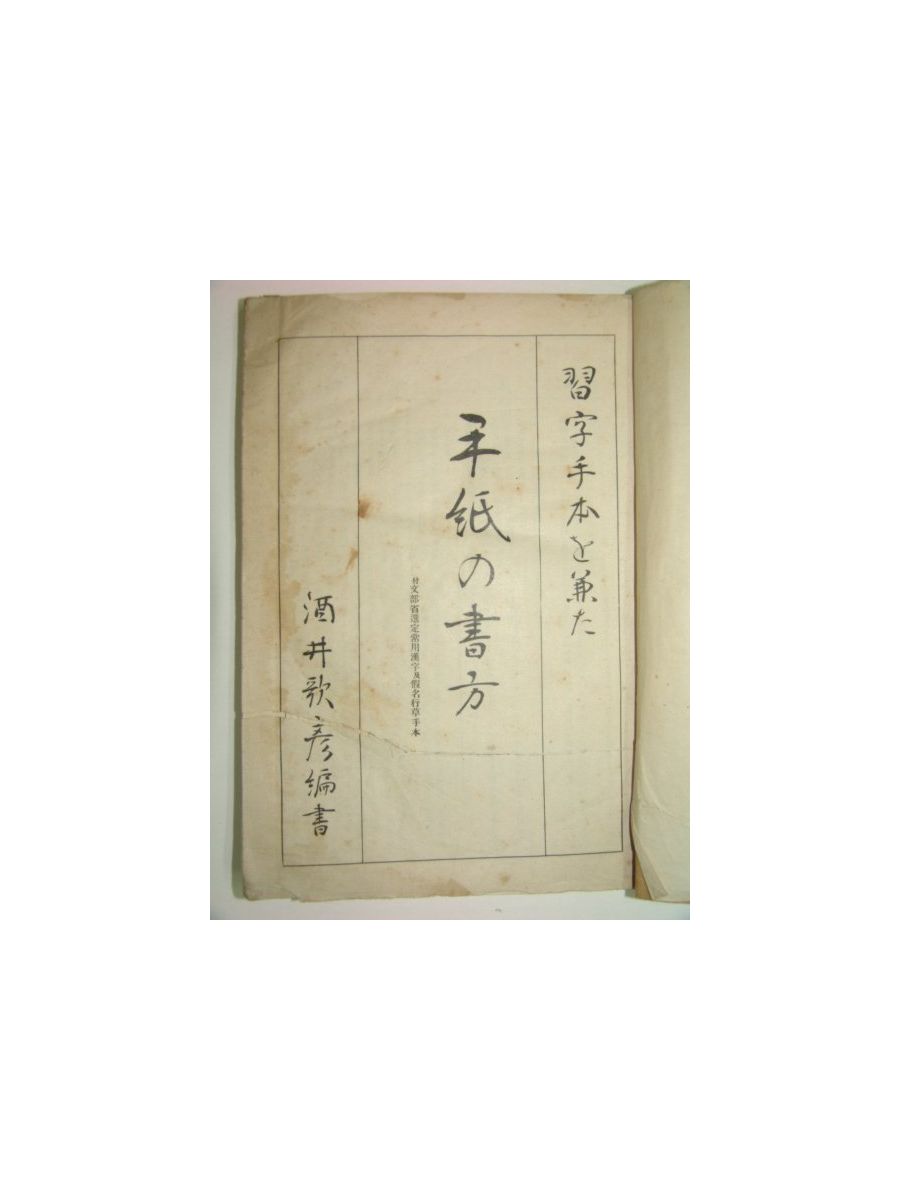 習字手本を兼た
手紙の書方
付文部省選定常用漢字及假名行草手本
酒井歌彦編書